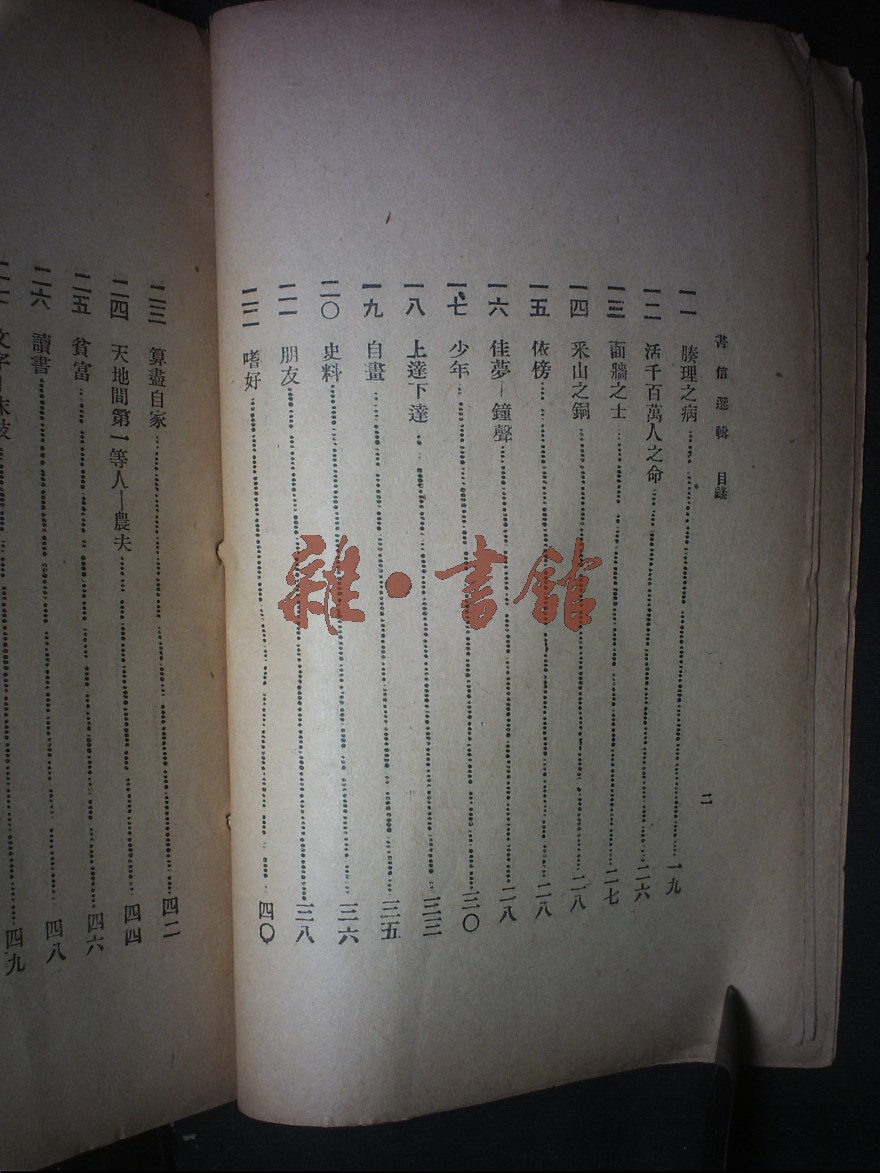 書信選輯 目錄 二
一一 腠理之病 一九
一二 活千百萬人之命 二六
一三 面牆之士 二七
一四 采山之銅 二八
一五 依傍 二八
一六 佳夢—鐘聲 二八
一七 少年 三〇
一八 上達下達 三三
一九 自畫 三五
二〇 史料 三六
二一 朋友 三八
二二 嗜好 四〇
二三 算盡自家 四二
二四 天地間第一等人—農夫 四四
二五 貧富 四六
二六 讀書 四八
文字—末技 四九
雜·書館